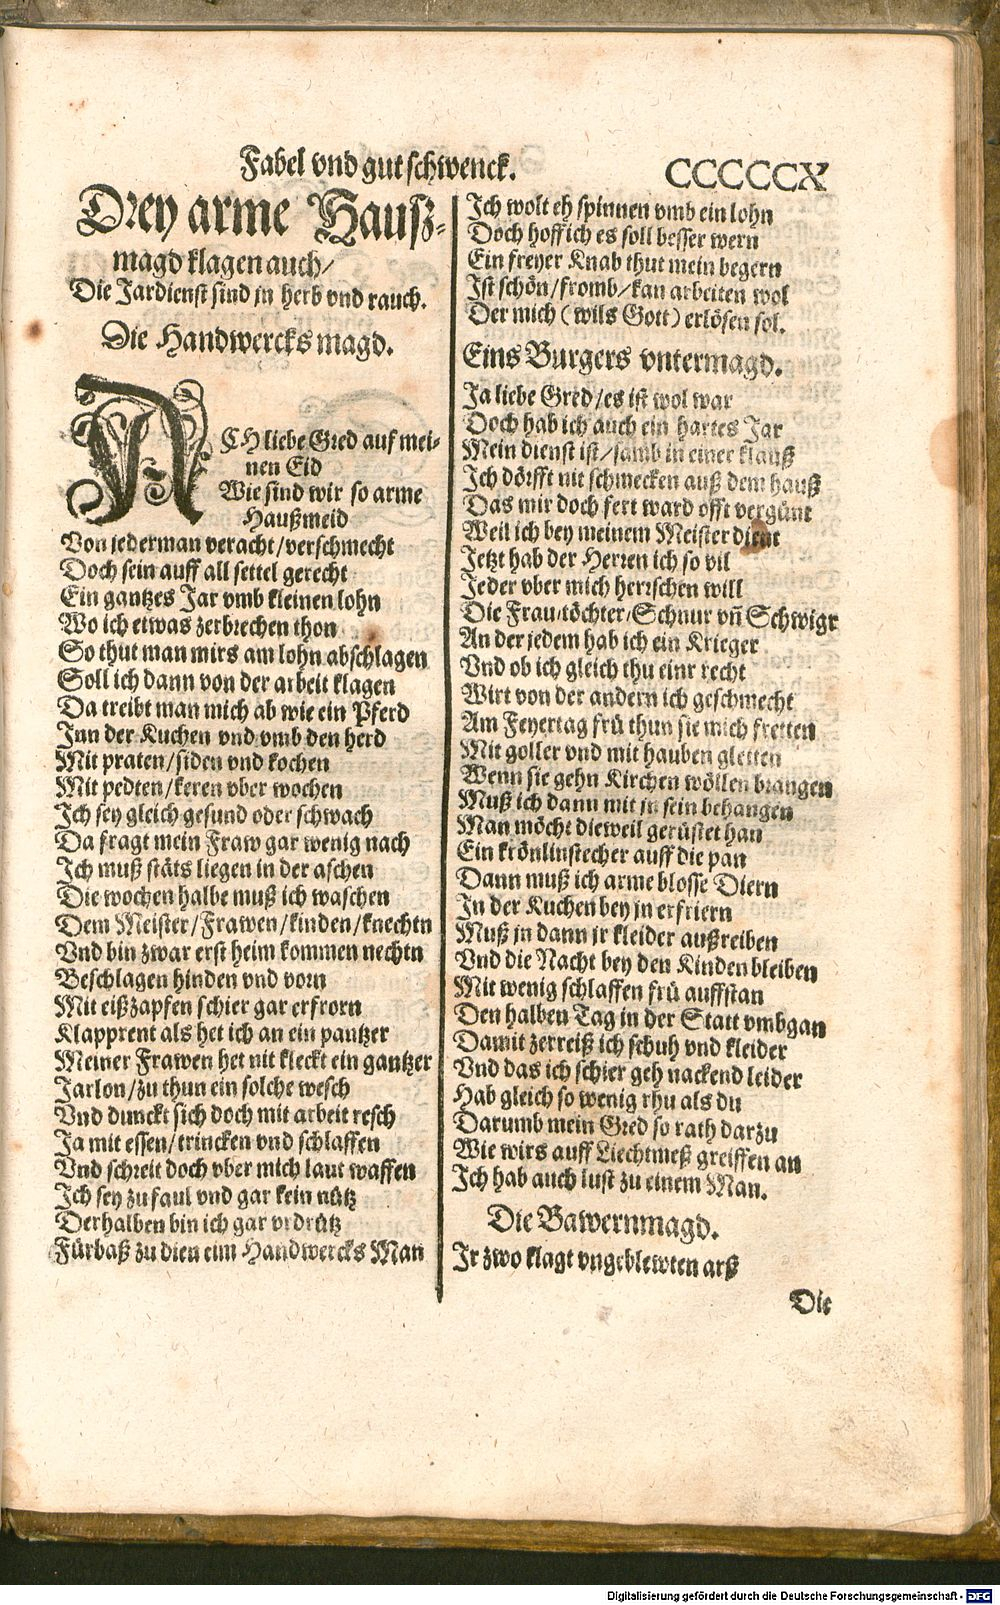 Fabel vnd gut schwenck.
CCCCCCX
Drey arme Hauß-
magd klagen auch/
Die Jardienst sind jn herb vnd rauch.
Die Handwercks magd.
ACH liebe Gred auf mei-
nen Eid
Wie sind wir so arme
Haußmeid
Von jederman veracht/verschmecht
Doch sein auff all settel gerecht
Ein gantzes Jar vmb kleinen lohn
Wo ich etwas zerbrechen thon
So thut man mirs am lohn abschlagen
Soll ich dann von der arbeit klagen
Da treibt man mich ab wie ein Pferd
Inn der Kuchen vnd vmb den herd
Mit praten/siden vnd kochen
Mit pedten/keren vber wochen
Ich sey gleich gesund oder schwach
Da fragt mein Fraw gar wenig nach
Ich muß stäts liegen in der aschen
Die wochen halbe muß ich waschen
Dem Meister/Frawen/kinden/knechtn
Vnd bin zwar erst heim kommen nechtn
Beschlagen hinden vnd vorn
Mit eißzapfen schier gar erfrorn
Klapprent als het ich an ein pantzer
Meiner Frawen het nit kleckt ein gantzer
Jarlon/zu thun ein solche wesch
Vnd dunckt sich doch mit arbeit resch
Ja mit essen/trincken vnd schlaffen
Vnd schreit doch vber mich laut waffen
Ich sey zu faul vnd gar kein nütz
Derhalben bin ich gar vrdrütz
Fürbaß zu dien eim Handwercks Man
Ich wolt eh spinnen vmb ein lohn
Doch hoff ich es soll besser wern
Ein freyer Knab thut mein begern
Ist schön/fromb/kan arbeiten wol
Der mich (wils Gott) erlösen sol.
Eins Burgers vntermagd.
Ja liebe Gred/es ist wol war
Doch hab ich auch ein hartes Jar
Mein dienst ist/samb in einer klauß
Ich dörfft nit schmecken auß dem hauß
Das mir doch fert ward offt vergünt
Weil ich bey meinem Meister dient
Jetzt hab der Herren ich so vil
Jeder vber mich herrschen will
Die Frau/töchter/Schnur vñ Schwigr
An der jedem hab ich ein Krieger
Vnd ob ich gleich thu einr recht
Wirt von der andern ich geschmecht
Am Feyertag frü thun sie mich fretten
Mit goller vnd mit hauben gletten
Wenn sie gehn Kirchen wöllen brangen
Muß ich dann mit jn sein behangen
Man möcht dieweil gerüstet han
Ein krönlinstecher auff die pan
Dann muß ich arme blosse Diern
In der Kuchen bey jn erfriern
Muß jn dann jr kleider außreiben
Vnd die Nacht bey den Kinden bleiben
Mit wenig schlaffen frü auffstan
Den halben Tag in der Statt vmbgan
Damit zerreiß ich schuh vnd kleider
Vnd das ich schier geh nackend leider
Hab gleich so wenig rhu als du
Darumb mein Gred so rath darzu
Wie wirs auff Liechtmeß greiffen an
Ich hab auch lust zu einem Man.
Die Bawernmagd.
Ir zwo klagt vngeblewten arß
Die
Digitalisierung gefördert durch die Deutsche Forschungsgemeinschaft - DFG